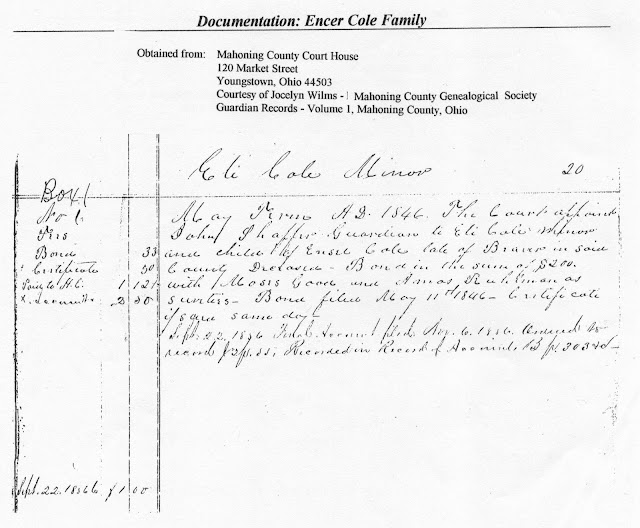 Documentation: Encer Cole Family
Obtained from: Mahoning County Court House
120 Market Street
Youngstown, Ohio 44503
Courtesy of Jocelyn Wilms - Mahoning County Genealogical Society
Guardian Records - Volume 1, Mahoning County, Ohio
Eli Cole Minor 20
Box 1
No 1.
May Term A.D. 1846. The Court appoints
Fees
John Shaffer Guardian to Eli Cole Minor
Bond 33
and child of Ensel Cole late of Beaver in said
Certificate 50
County Deceased - Bond in the sum of $200.
1 121
with Moses Good and Amos Ruhlman as
2 20
sureties - Bond filed May 11th 1846 - Certificate
issued same day -
Sept. 22. 1856 Final Account filed Nov. 6. 1856. Ordered to
record Recorded in Record of Accounts
Sept. 22. 1856 $1 00